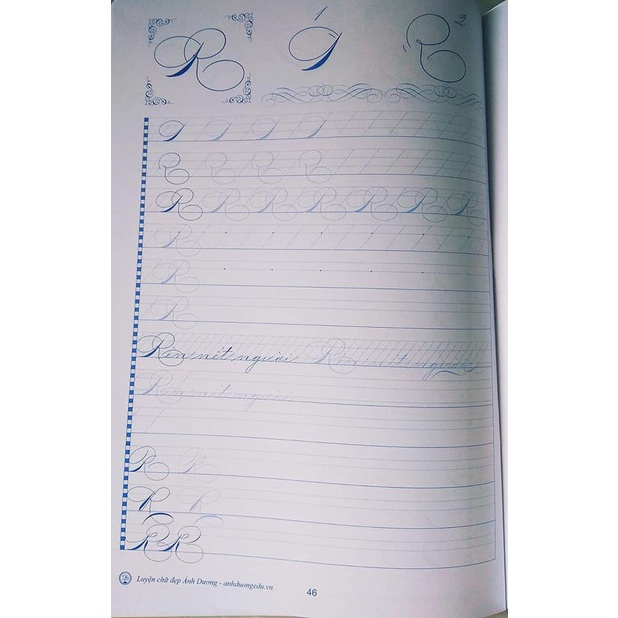 R 1 R 2
R R R R R R R
R
R
R
Rèn nét người Rèn nét người
Rèn nét người
R R
R R
R R
Luyện chữ đẹp Ánh Dương - anhduongedu.vn
46